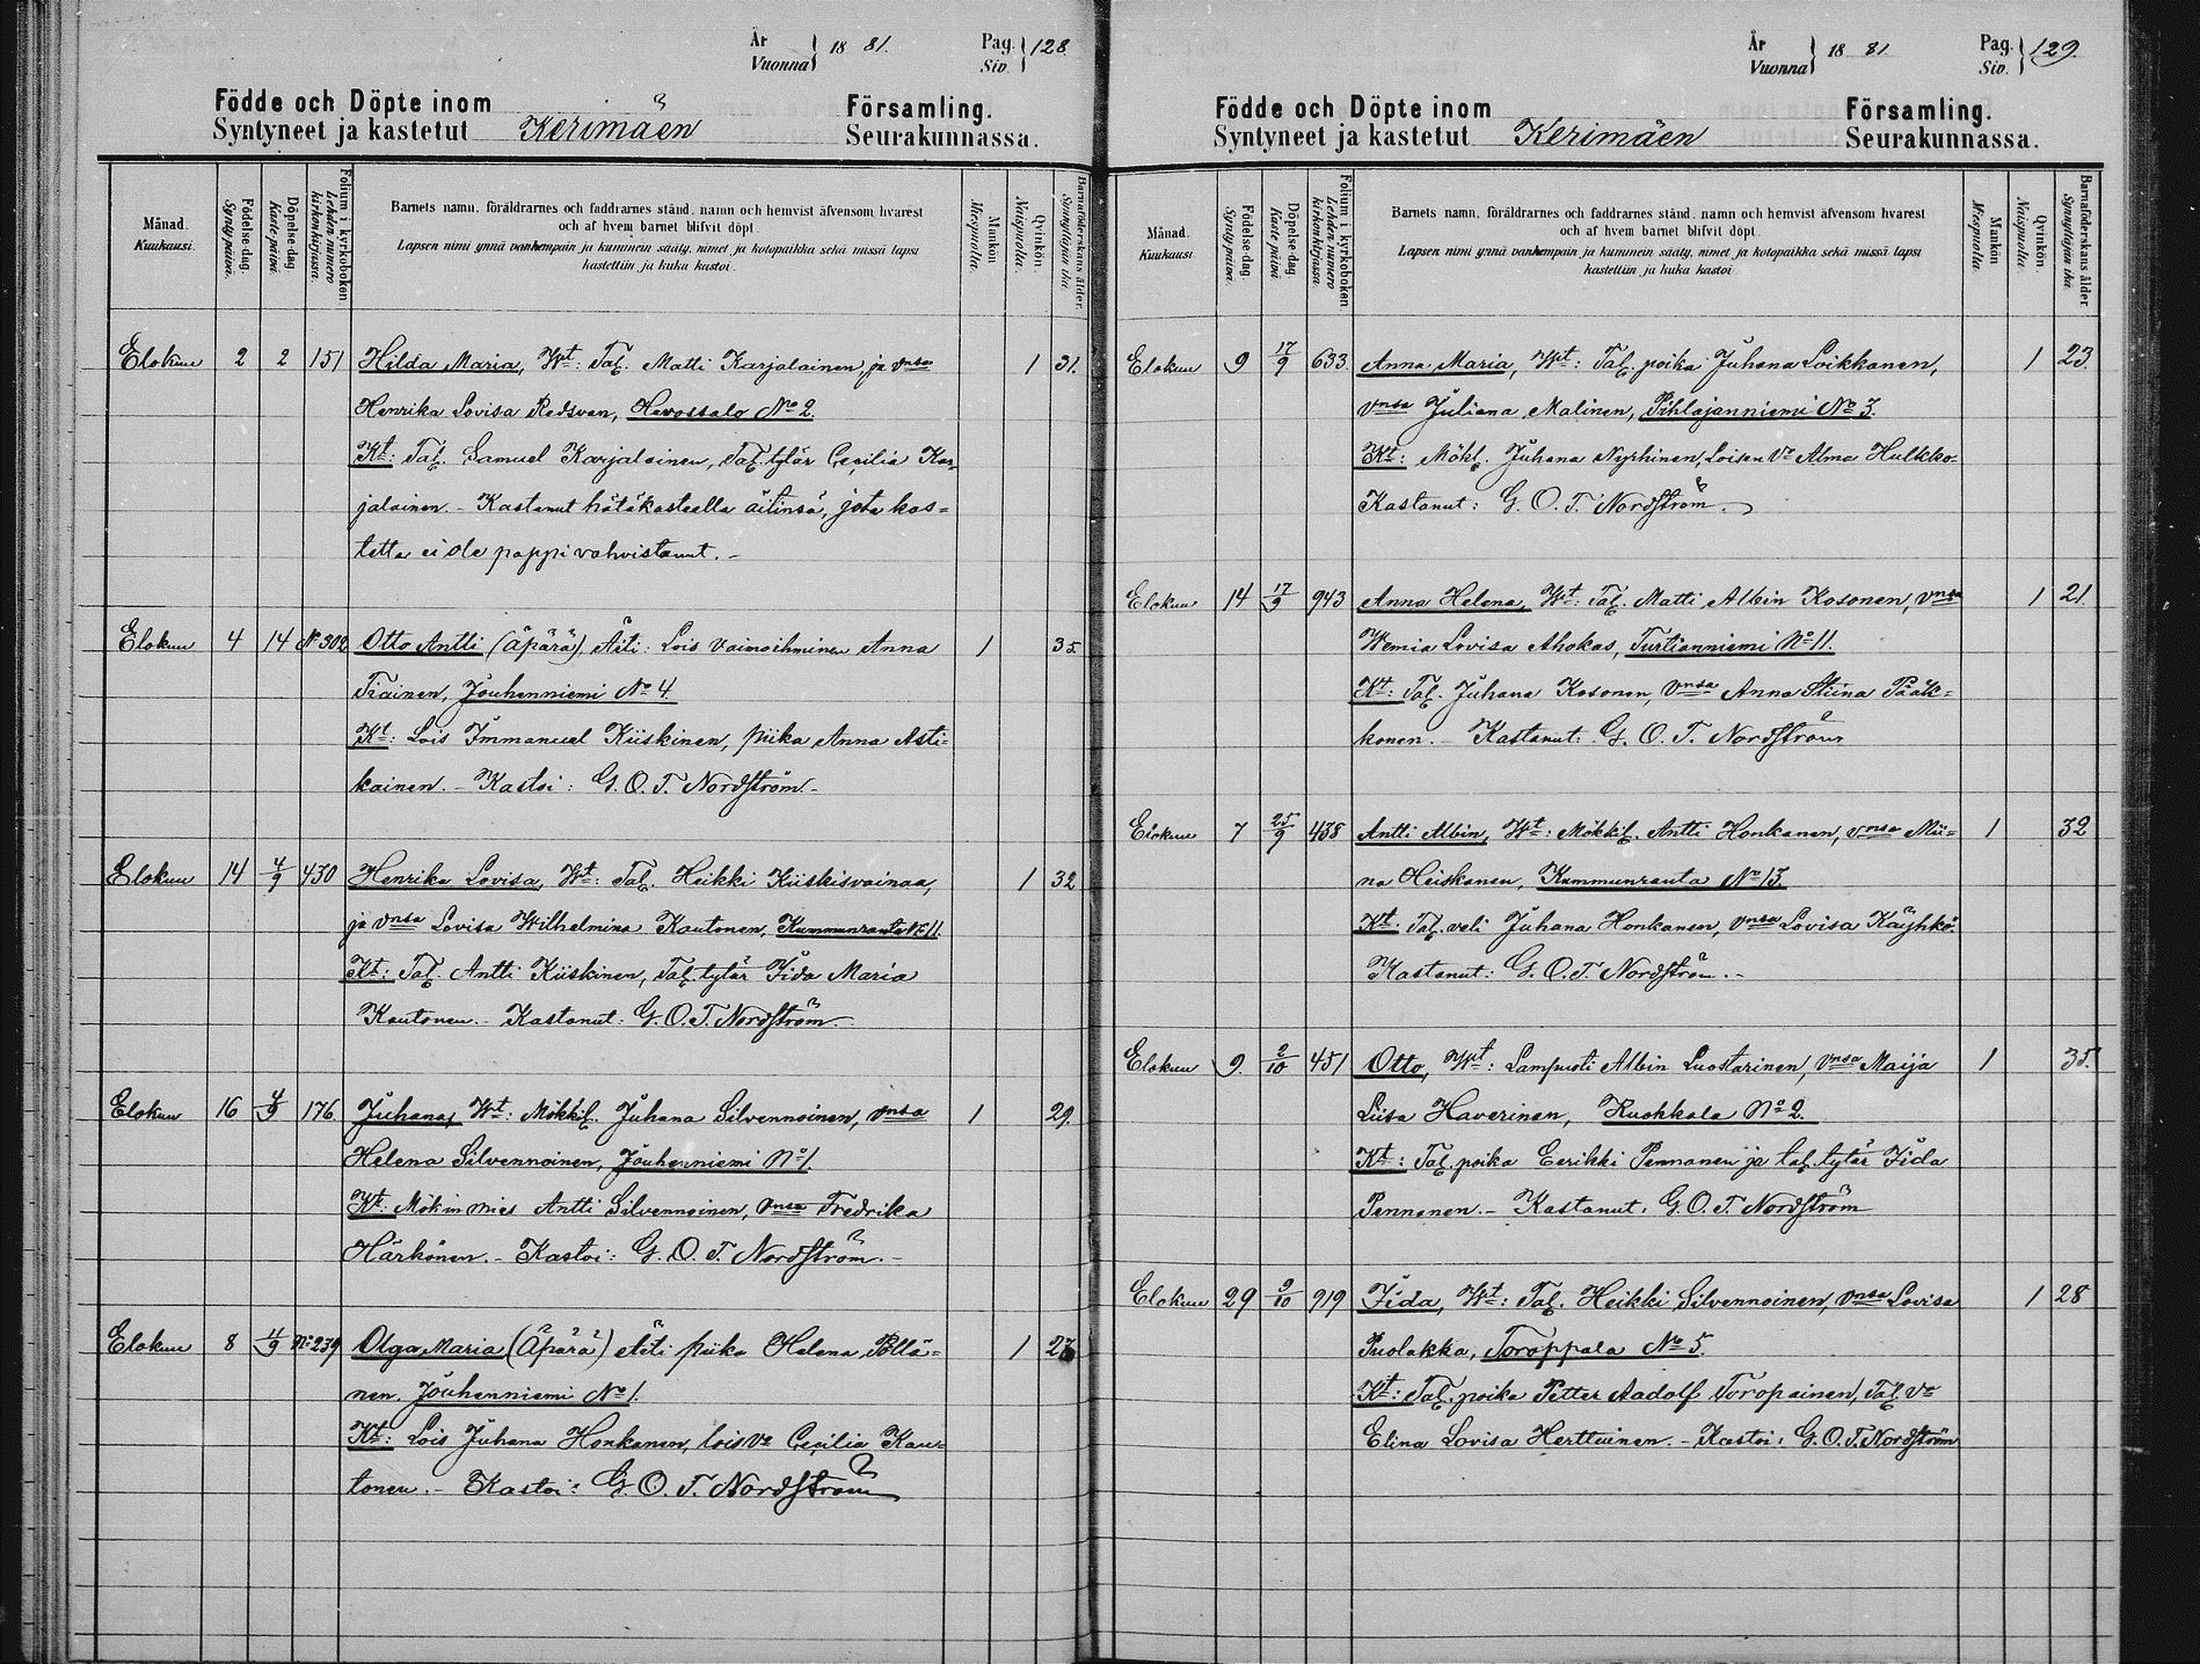 År
Vuonna } 18 81.
Pag.
Siv. } 128
Födde och Döpte inom
Syntyneet ja kastetut Kerimäen
Församling.
Seurakunnassa.
Månad.
Kuukausi.
Födelse-dag.
Syntypäivä.
Döpelse-dag.
Kaste-päivä.
Folium i kyrkoboken.
Lehden numero
kirkonkirjassa.
Barnets namn, föräldrarnes och faddrarnes stånd, namn och hemvist äfvensom hvarest
och af hvem barnet blifvit döpt.
Lapsen nimi ynnä vanhempain ja kummein sääty, nimet ja kotopaikka sekä missä lapsi
kastettiin ja kuka kastoi.
Mankön
Miespuolia.
Qvinkön.
Naispuolia.
Barnaföderskans ålder.
Synnyttäjän ikä
Elokuu 2 2 151 Hilda Maria, Wt: Tal. Matti Karjalainen, ja vnsa 1 31.
Henrika Lovisa Redsven, Hevossalo No 2.
Kt: Tal. Samuel Karjalainen, Tal. tytär Cecilia Kar-
jalainen. - Kastanut hätäkasteella äitinsä, jota kas=
tetta ei ole pappi vahvistanut. -
Elokuu 4 14 No 302 Otto Antti (Äpärä), Äiti: Lois vaimoihminen Anna 1 35.
Tiainen, Jouhenniemi No 4.
Kt: Lois Immanuel Kiiskinen, piika Anna Asti=
kainen. - Kastoi: G. O. T. Nordström. -
Elokuu 14 4/9 430 Henrika Lovisa, Wt: Tal. Heikki Kiiskisvainaa, 1 32
ja vnsa Lovisa Wilhelmina Kautonen, Kummunranta No 11.
Kt: Tal. Antti Kiiskinen, Tal. tytär Iida Maria
Kautonen. - Kastanut: G. O. T. Nordström.
Elokuu 16 4/9 176. Juhana, Wt: Mökkil. Juhana Silvennoinen, vnsa 1 29.
Helena Silvennoinen, Jouhenniemi No 1.
Kt: Mökin mies Antti Silvennoinen, vnsa Fredrika
Härkönen. - Kastoi: G. O. T. Nordström. -
Elokuu 8 4/9 No 239 Olga Maria (Äpärä) Äiti piika Helena Pöllä= 1 27
nen. Jouhenniemi No 1.
Kt: Lois Juhana Honkanen, lois vo Cecilia Kau=
tonen. - Kastoi: G. O. T. Nordström
År
Vuonna } 18 81.
Pag.
Siv. } 129.
Födde och Döpte inom
Syntyneet ja kastetut Kerimäen
Församling.
Seurakunnassa.
Månad.
Kuukausi
Födelse-dag.
Syntypäivä.
Döpelse-dag.
Kaste-päivä
Folium i kyrkoboken.
Lehden numero
kirkonkirjassa.
Barnets namn, föräldrarnes och faddrarnes stånd, namn och hemvist äfvensom hvarest
och af hvem barnet blifvit döpt.
Lapsen nimi ynnä vanhempain ja kummein sääty, nimet ja kotopaikka sekä missä lapsi
kastettiin ja kuka kastoi
Mankön
Miespuolia.
Qvinkön.
Naispuolia
Barnaföderskans ålder
Synnyttäjän ikä
Elokuu 9 17/9 633. Anna Maria, Wt: Tal. poika Juhana Loikkanen, 1 23.
vnsa Juliana Malinen, Pihlajanniemi No 3.
Kt: Mökl. Juhana Nyrhinen, Loisen Vo Alma Hulkko-
Kastanut: G. O. T. Nordström.
Elokuu 14 17/9 943 Anna Helena, Wt: Tal. Matti Albin Kosonen, vnsa 1 21.
Wemia Lovisa Ahokas, Turtianniemi No 11.
Kt: Tal. Juhana Kosonen, vnsa Anna Stiina Pääk=
konen. - Kastanut: G. O. T. Nordström
Elokuu 7 25/9 438 Antti Albin, Wt: Mökkil. Antti Honkanen, vnsa Mii= 1 32
na Heiskanen, Kummunranta No 13.
Kt: Tal. veli Juhana Honkanen, vnsa Lovisa Käyhkö.
Kastanut: G. O. T. Nordström. -
Elokuu 9. 2/10 451 Otto, Wt: Lampuoti Albin Luostarinen, vnsa Maija 1 35.
Liisa Haverinen, Ruokkala No 2.
Kt: Tal. poika Eerikki Pennanen ja tal. tytär Iida
Pennanen. - Kastanut: G. O. T. Nordström
Elokuu 29 9/10 919 Iida, Wt: Tal. Heikki Silvennoinen, vnsa Lovisa 1 28
Puolakka, Toroppala No 5.
Kt: Tal. poika Petter Aadolf Toropainen, Tal. Vo
Elina Lovisa Herttuinen. - Kastoi: G. O. T. Nordström